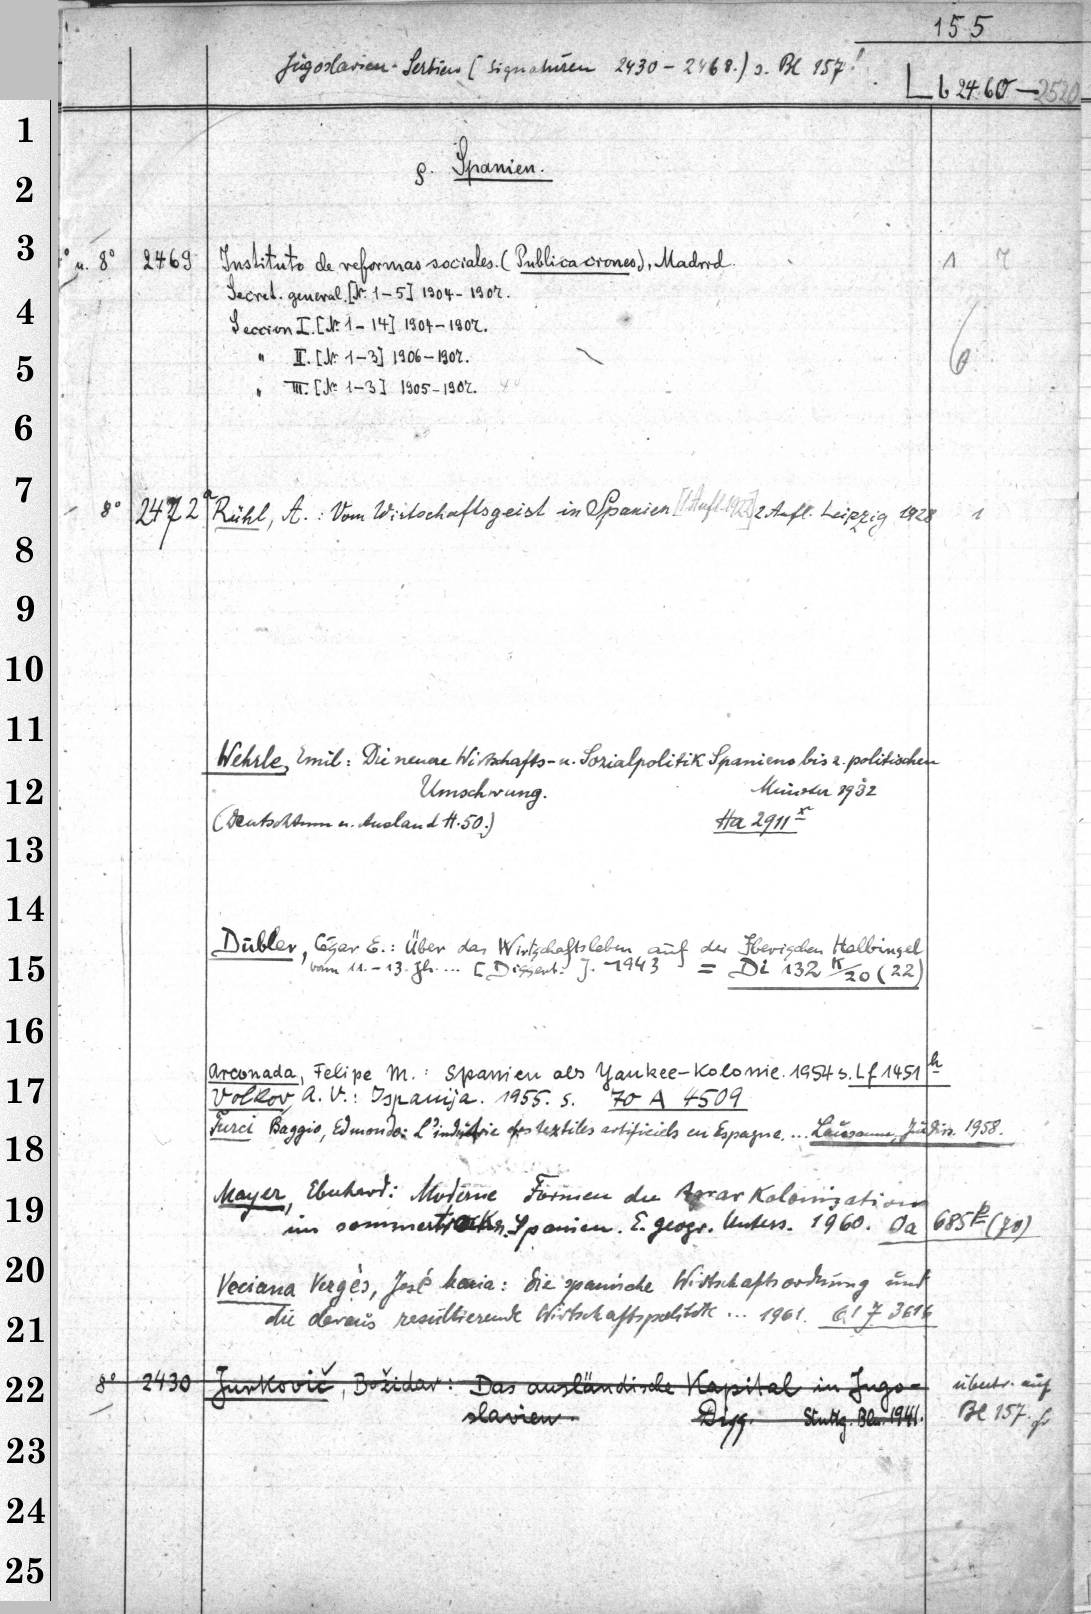 155
Jugoslavien-Serbien (Signaturen 2430-2468.) s. Bl 157!
Lb 2460-2520
1
g. Spanien.
2
3
4° u. 8° 2469 Instituto de reformas sociales. (Publicaciones), Madrid. 1
Secret. general. [Nr. 1-5] 1904-1907.
4
Seccion I. [Nr. 1-14] 1904-1907.
" II. [Nr. 1-3] 1906-1907.
5
" III. [Nr. 1-3] 1905-1907. 4°
6
7
8° 2472a Rühl, A.: Vom Wirtschaftsgeist in Spanien [1 Aufl. 1922] 2 Aufl. Leipzig 1928 1
8
9
10
11
Wehrle, Emil: Die neuere Wirtschafts- u. Sozialpolitik Spaniens bis z. politischen
12
Umschwung. Münster 1932
(Deutschtum u. Ausland H. 50.) Ha 2911 x
13
14
Dubler, César E.: Über das Wirtschaftsleben auf der Iberischen Halbinsel
15
vom 11.-13. Jh. ... [Dissert.] 1943 = Di 132 K/20 (22)
16
Arconada, Felipe M.: Spanien als Yankee-Kolonie. 1954 s. Lf 1451 h
17
Volkov, A. V.: Ispanija. 1955. s. 70 A 4509
Turci Baggio, Edmondo: L'industrie des textiles artificiels en Espagne. ... Lausanne, Jur. Diss. 1958.
18
Mayer, Eberhard: Moderne Formen der Agrarkolonisation
19
im sommertrockn. Spanien. E. geogr. Unters. 1960. Oa 685 (70)
20
Veciana Vergés, José Maria: Die spanische Wirtschaftsordnung und
die daraus resultierende Wirtschaftspolitik ... 1961. 61 7 3616
21
22
8° 2430 Jurkovič, Božidar: Das ausländische Kapital in Jugo- übertr. auf
slavien. Diss. Stuttg. Bln. 1941. Bl 157.
23
24
25